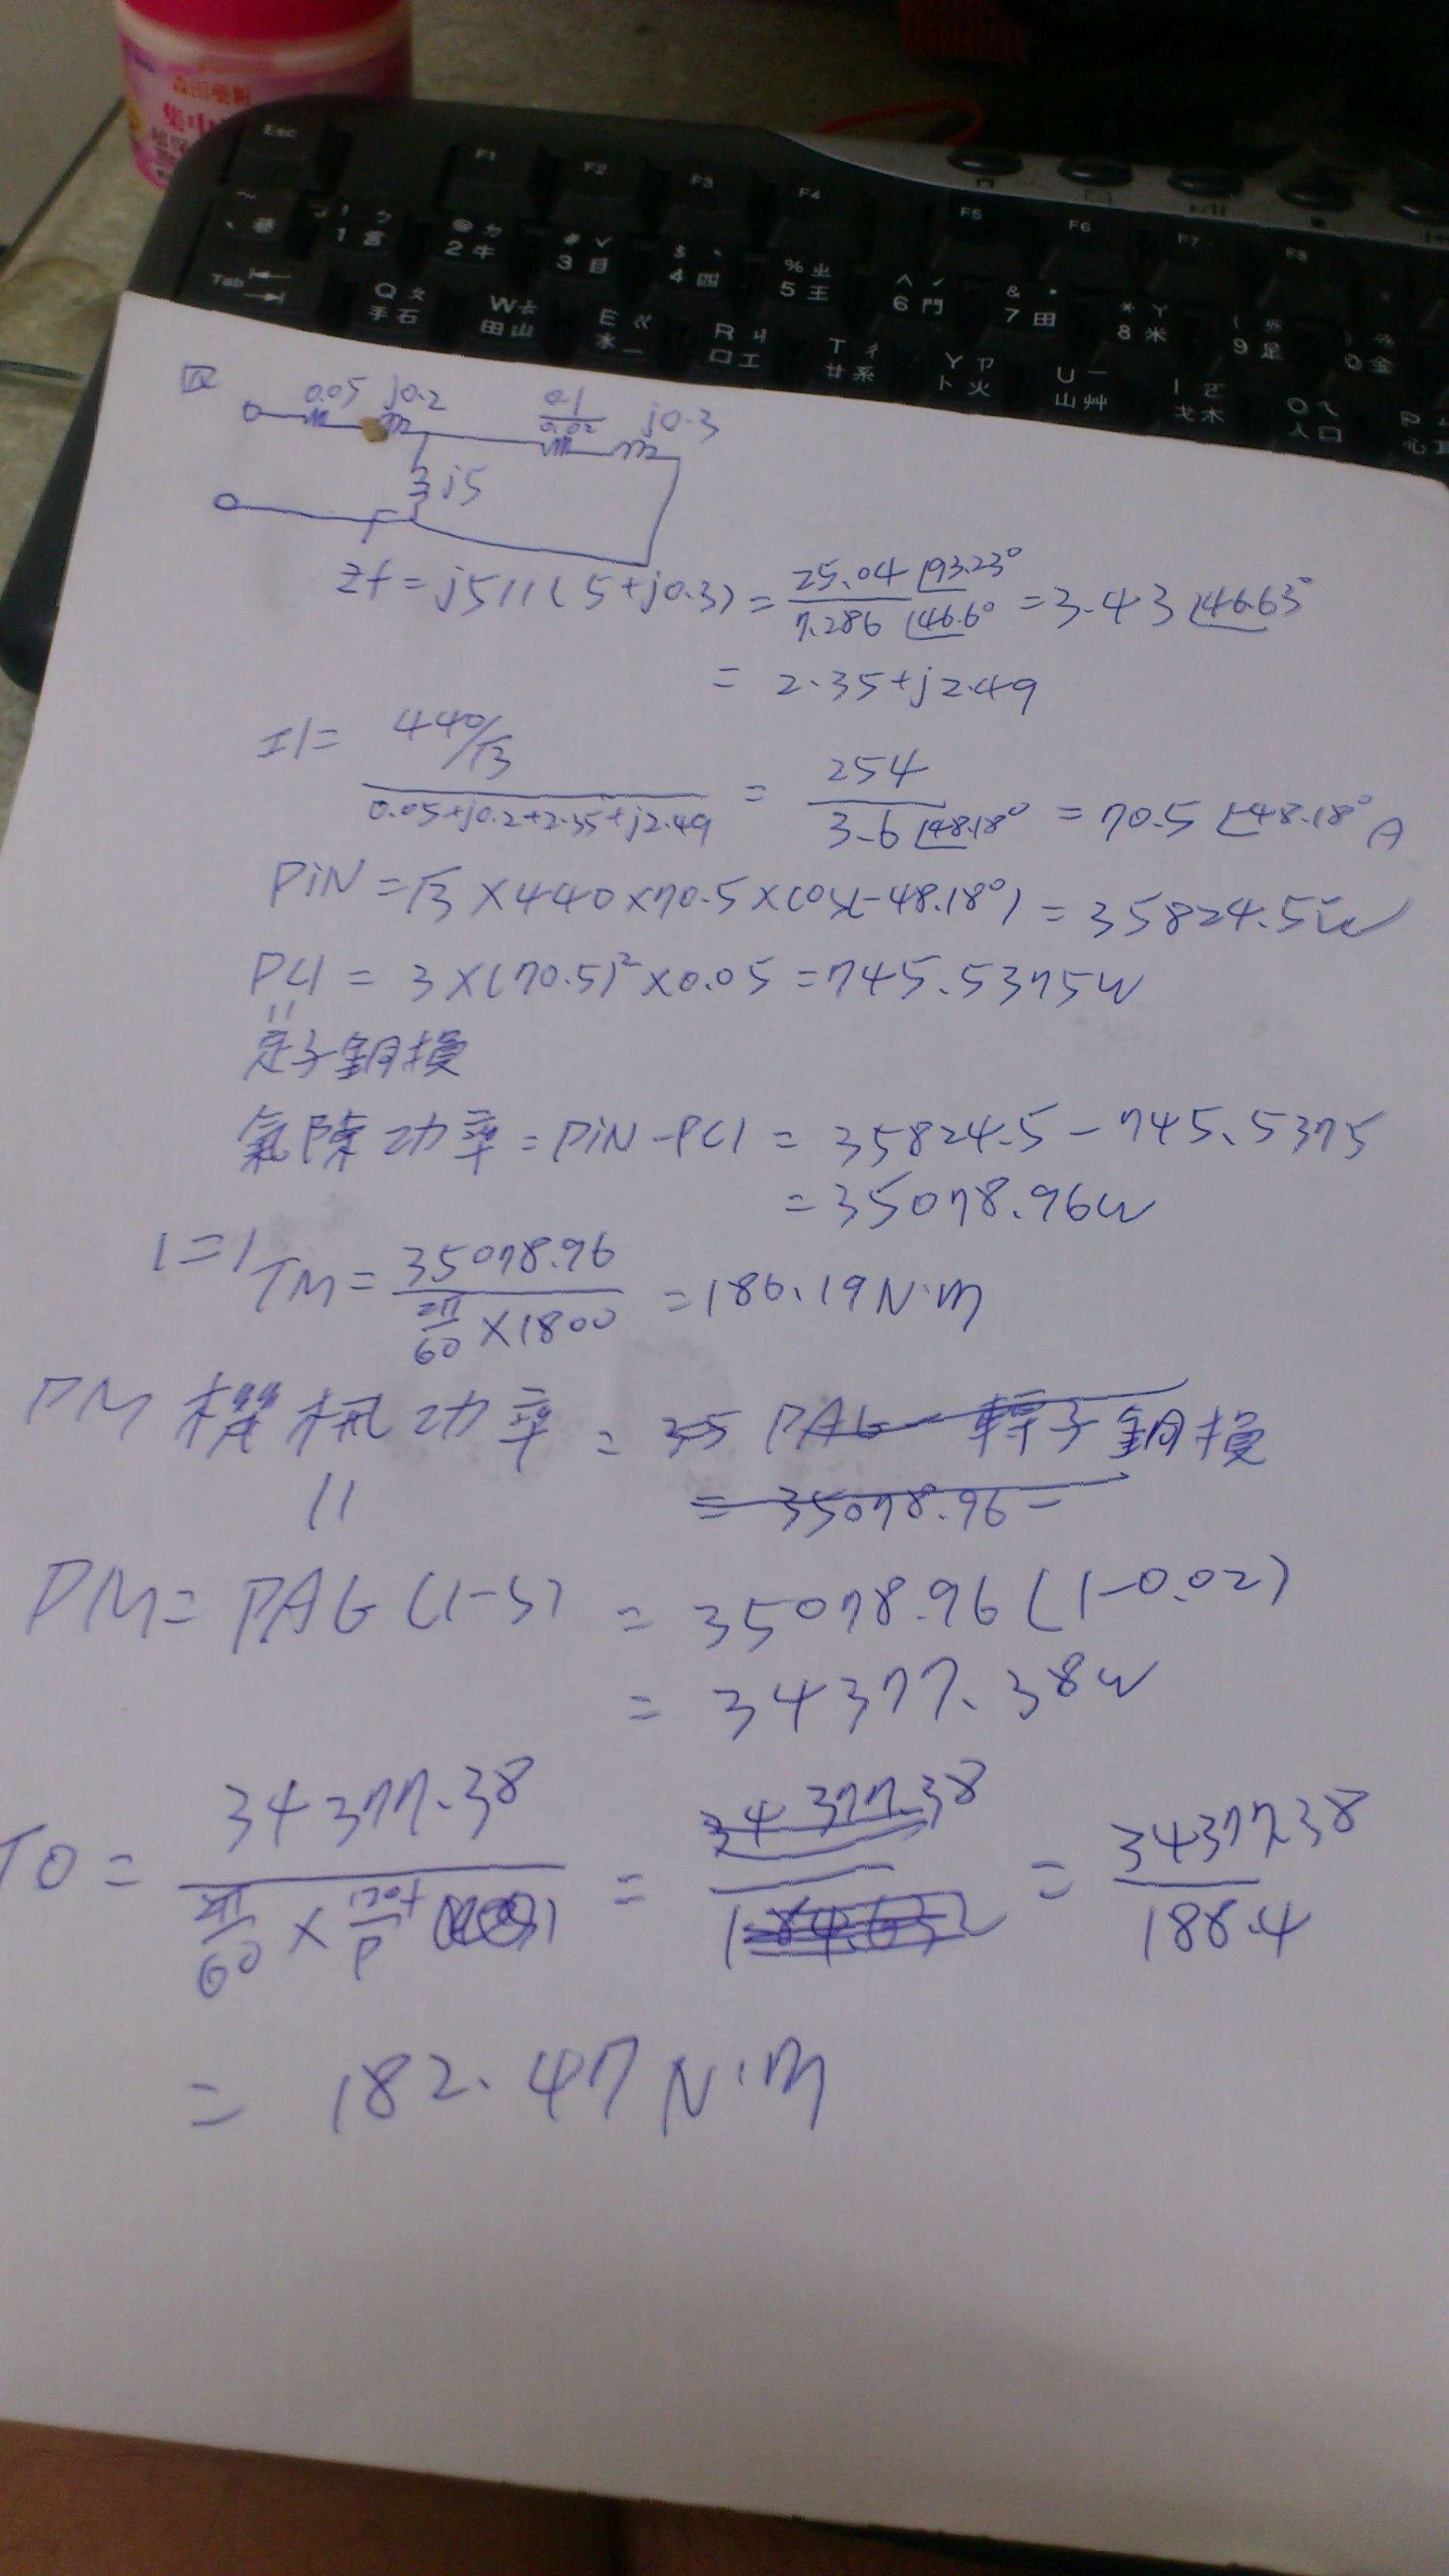 森田藥粧
集中
Esc
F1 F2 F3 F4 F5 F6 F7 F8
~ ! ㄅ @ ㄉ # ˇ $ ˋ % ㄓ ^ ˊ & ˙ * ㄚ ( ㄞ ) ㄢ
1 言 2 牛 3 目 4 四 5 王 6 門 7 田 8 米 9 足 0 金
Tab Q ㄆ W ㄊ E ㄍ R ㄐ T ㄔ Y ㄗ U ㄧ I ㄛ O ㄟ P
手石 田山 水一 口工 廿系 卜火 山艸 戈木 人口 心
四
0.05 j0.2 0.1/0.02 j0.3
j5
Zf = j5 // (5+j0.3) = 25.04∠93.23° / 7.286∠46.6° = 3.43∠46.63°
= 2.35+j2.49
I1 = 440/√3 / 0.05+j0.2+2.35+j2.49 = 254 / 3.6∠48.18° = 70.5∠-48.18° A
PiN = √3 × 440 × 70.5 × cos(-48.18°) = 35824.5w
PC1 = 3×(70.5)²×0.05 = 745.5375w
"
定子銅損
氣隙功率 = PiN-PC1 = 35824.5 - 745.5375
= 35078.96w
TM = 35078.96 / 2π/60 × 1800 = 186.19 N·m
PM 機械功率 = 35 PAG - 轉子銅損
= 35078.96 -
"
PM = PAG (1-S) = 35078.96 (1-0.02)
= 34377.38w
TO = 34377.38 / 2π/60 × 120f/P = 34377.38 = 34377.38 / 188.4
= 182.47 N·m